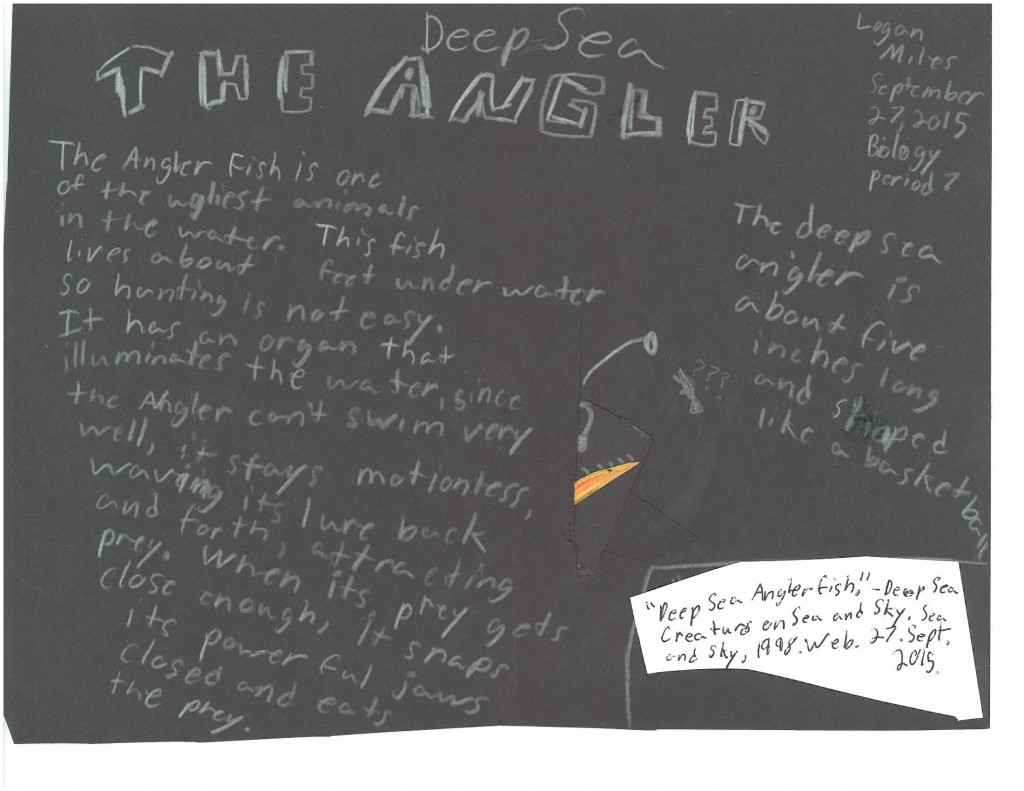 Deep Sea
THE ANGLER
Logan
Miles
September
27, 2015
Biology
period 7
The Angler Fish is one
of the ugliest animals
in the water. This fish
lives about feet under water
so hunting is not easy.
It has an organ that
illuminates the water, since
the Angler can't swim very
well, it stays motionless,
waving its lure back
and forth, attracting
prey. When its prey gets
close enough, it snaps
its powerful jaws
closed and eats
the prey.
???
The deep sea
angler is
about five
inches long
and shaped
like a basketball
"Deep Sea Anglerfish," - Deep Sea
Creatures on Sea and Sky. Sea
and Sky, 1998. Web. 27. Sept.
2015.